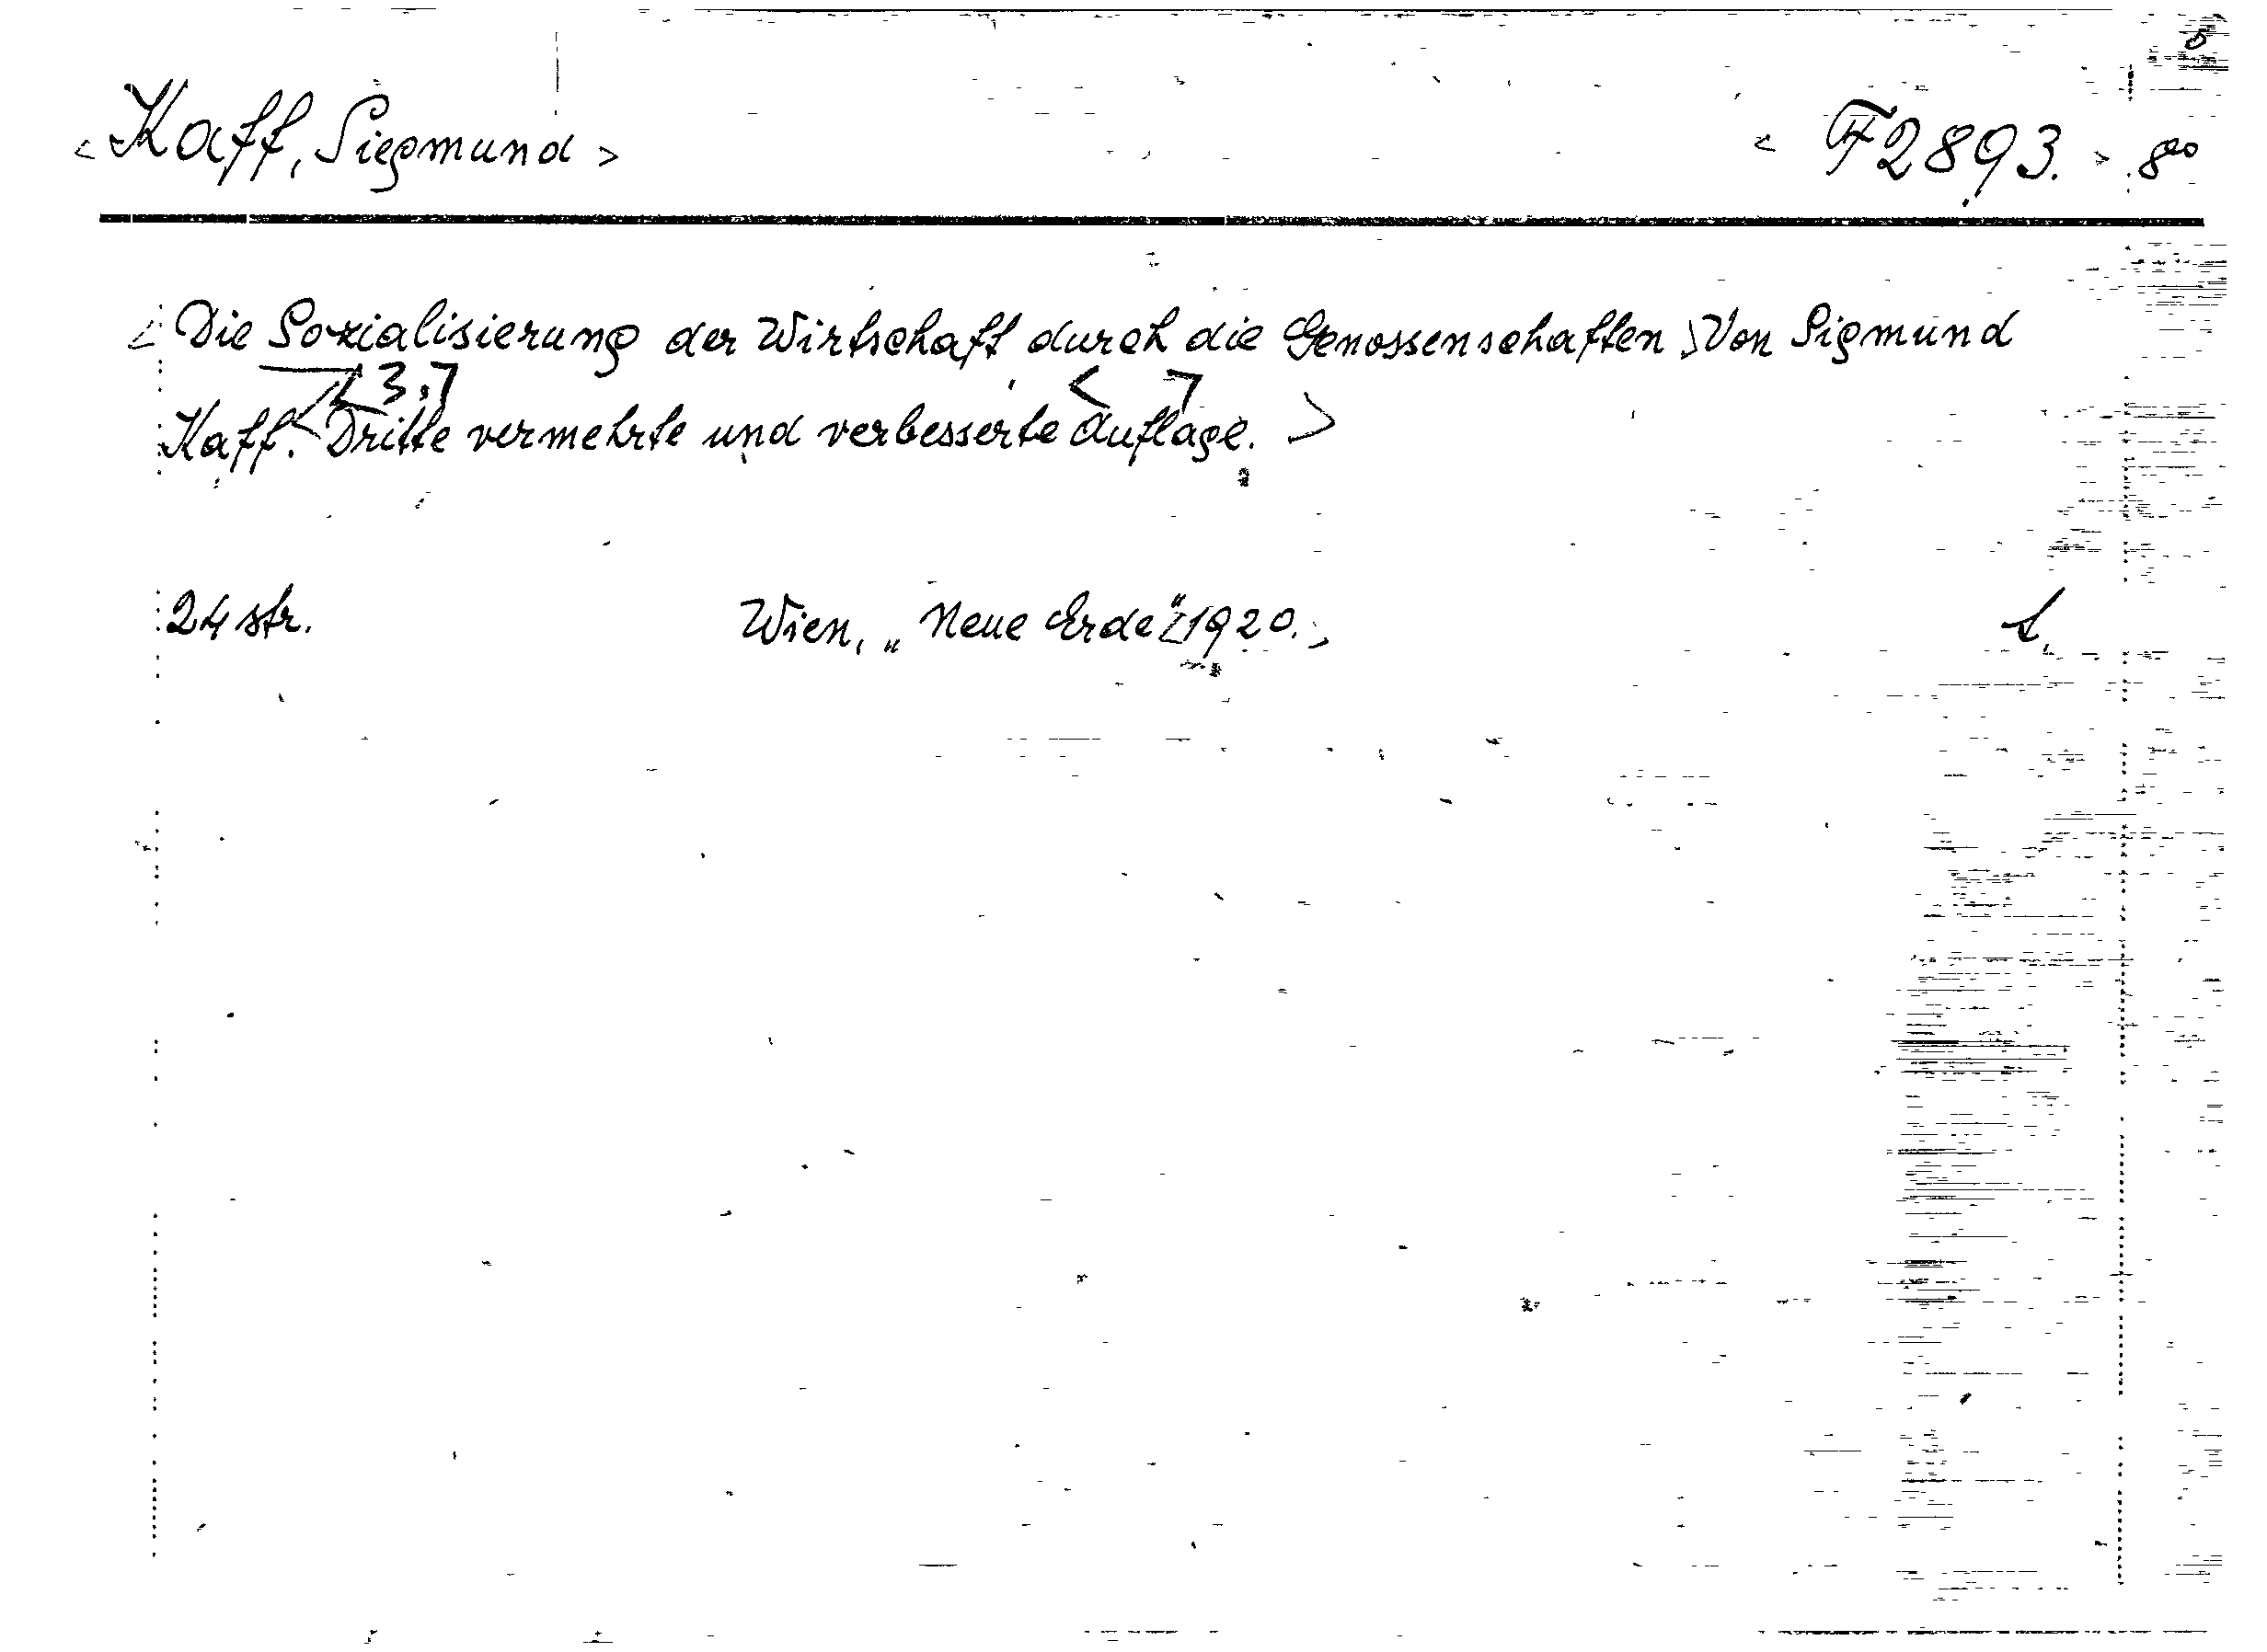 <Kaff, Siegmund> <F2893.> 8⁰⁰
<Die Sozialisierung der Wirtschaft durch die Genossenschaften> Von Sigmund
<3.> < >
Kaff. <Dritte vermehrte und verbesserte Auflage.>
24 str. Wien, „Neue Erde" <1920.>